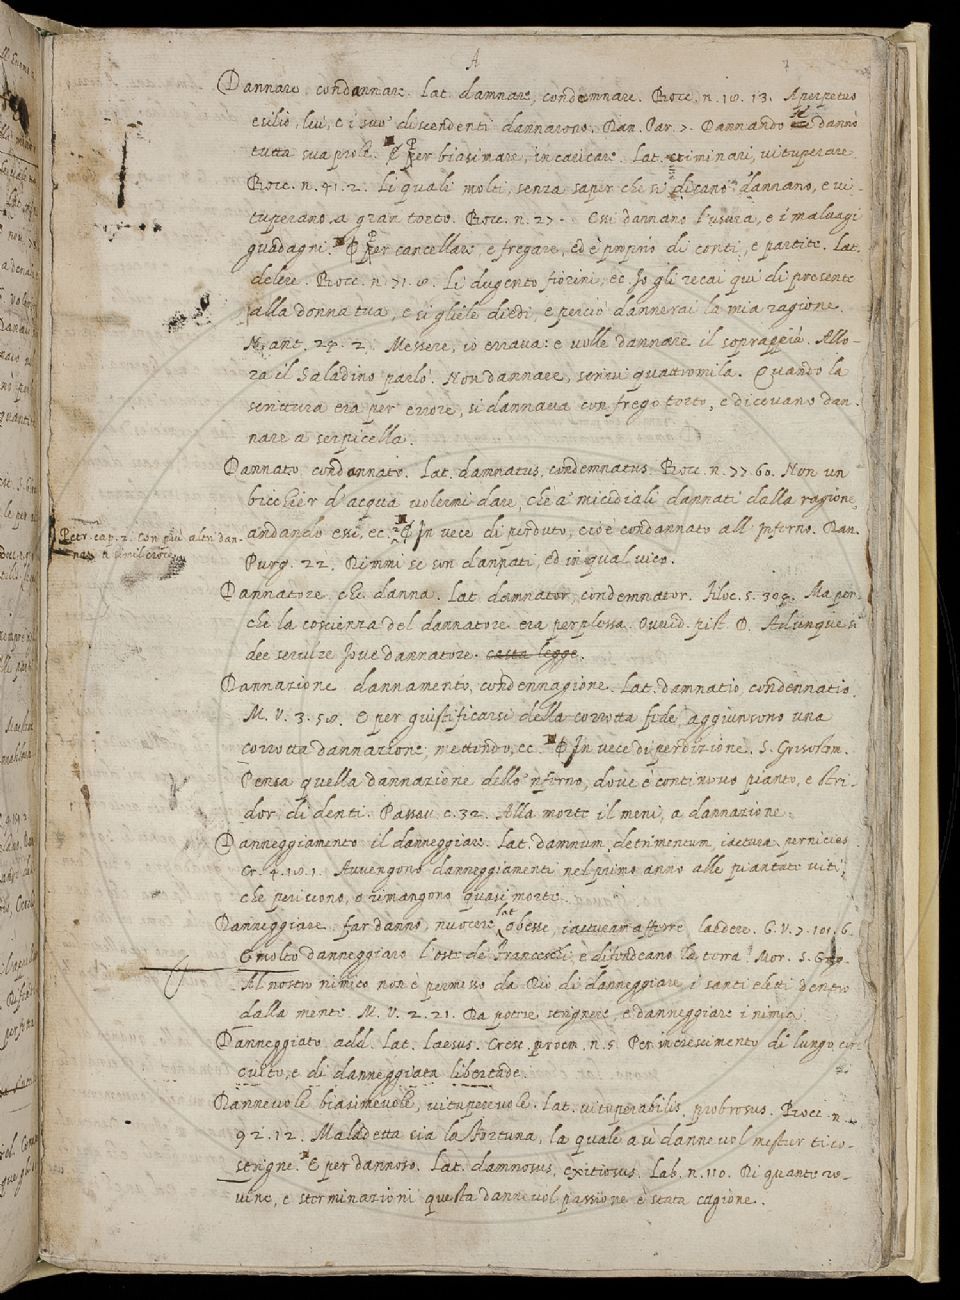 A
7
Dannare condannare. Lat. damnare, condemnare. Bocc. n. 18. 13. A perpetuo
esilio, lui, e i suoi discendenti dannarono. Dan. Par. 7. Dannando sè dannò
tutta sua prole. E per biasimare, incaricare. Lat. criminari, vituperare.
Bocc. n. 91. 2. Li quali molti, senza saper che si dicano dannano, e vi-
tuperano a gran torto. Bocc. n. 27. Essi dannano l'usura, e i malvagi
guadagni. E per cancellare, e fregare, ed è proprio di conti, e partite. Lat.
delere. Bocc. n. 71. 8. Li dugento fiorini, ec. Io gli recai qui di presente
alla donna tua, e sì gliele diedi, e perciò dannerai la mia ragione.
N. ant. 24. 2. Messere, io errava: e volle dannare il soprappiù. Allo-
ra il Saladino parlò. Non dannare, scrivi quattromila. Quando la
scrittura era per errore, si dannava con frego torto, e dicevano dan-
nare a serpicella.
Dannato condannato. Lat. damnatus, condemnatus. Bocc. n. 77. 60. Non un
bicchier d'acqua volermi dare, che a' micidiali dannati dalla ragione,
Petr. cap. 2. con più altri dan-
andando essi, ec. E In vece di perduto, cioè condannato all'Inferno. Dan.
Purg. 22. Dimmi se son dannati, ed in qual vico.
Dannatore che danna. Lat. damnator, condemnator. Filoc. 5. Ma per-
che la coscienza del dannatore era perplessa. Ovvid. pist. D. Adunque si
dee servire Jove dannatore. casta legge.
Dannazione dannamento, condennagione. Lat. damnatio, condennatio.
M. V. 3. 58. E per giustificarsi della corrotta fede aggiunsono una
corrotta dannazione, mettendo, ec. E In vece di perdizione. S. Grisostom.
Pensa quella dannazione dello 'nferno, dove è continuo pianto, e stri-
dor di denti. Passav. c. 32. Alla morte il meni, a dannazione.
Danneggiamento il danneggiare. Lat. damnum, detrimentum, iactura, pernicies.
Cr. 4. 18. 1. Avvengono danneggiamenti nel primo anno alle piantate viti,
che periscono, o rimangono quasi morte.
Danneggiare far danno, nuocere. lat. obesse, iacturam afferre, laedere. G. V. 7. 101. 6.
E molto danneggiaro l'oste de' Franceschi, e difendeano la terra. Mor. S. Greg.
Al nostro nimico non è permesso da Dio di danneggiare i santi eletti dentro
dalla mente. M. V. 2. 21. Da potere strignere, e danneggiare i nimici.
Danneggiato add. Lat. laesus. Cresc. proem. n. 5. Per increscimento di lungo cir-
cuito, e di danneggiata libertade.
Dannevole biasimevole, vituperevole. Lat. vituperabilis, probrosus. Bocc. n.
92. 12. Maladetta sia la Fortuna, la quale a sì dannevol mestier ti co-
strigne. E per dannoso. Lat. damnosus, exitiosus. Lab. n. 110. Di quante ro-
vine, e sterminazioni questa dannevol passione è stata cagione.